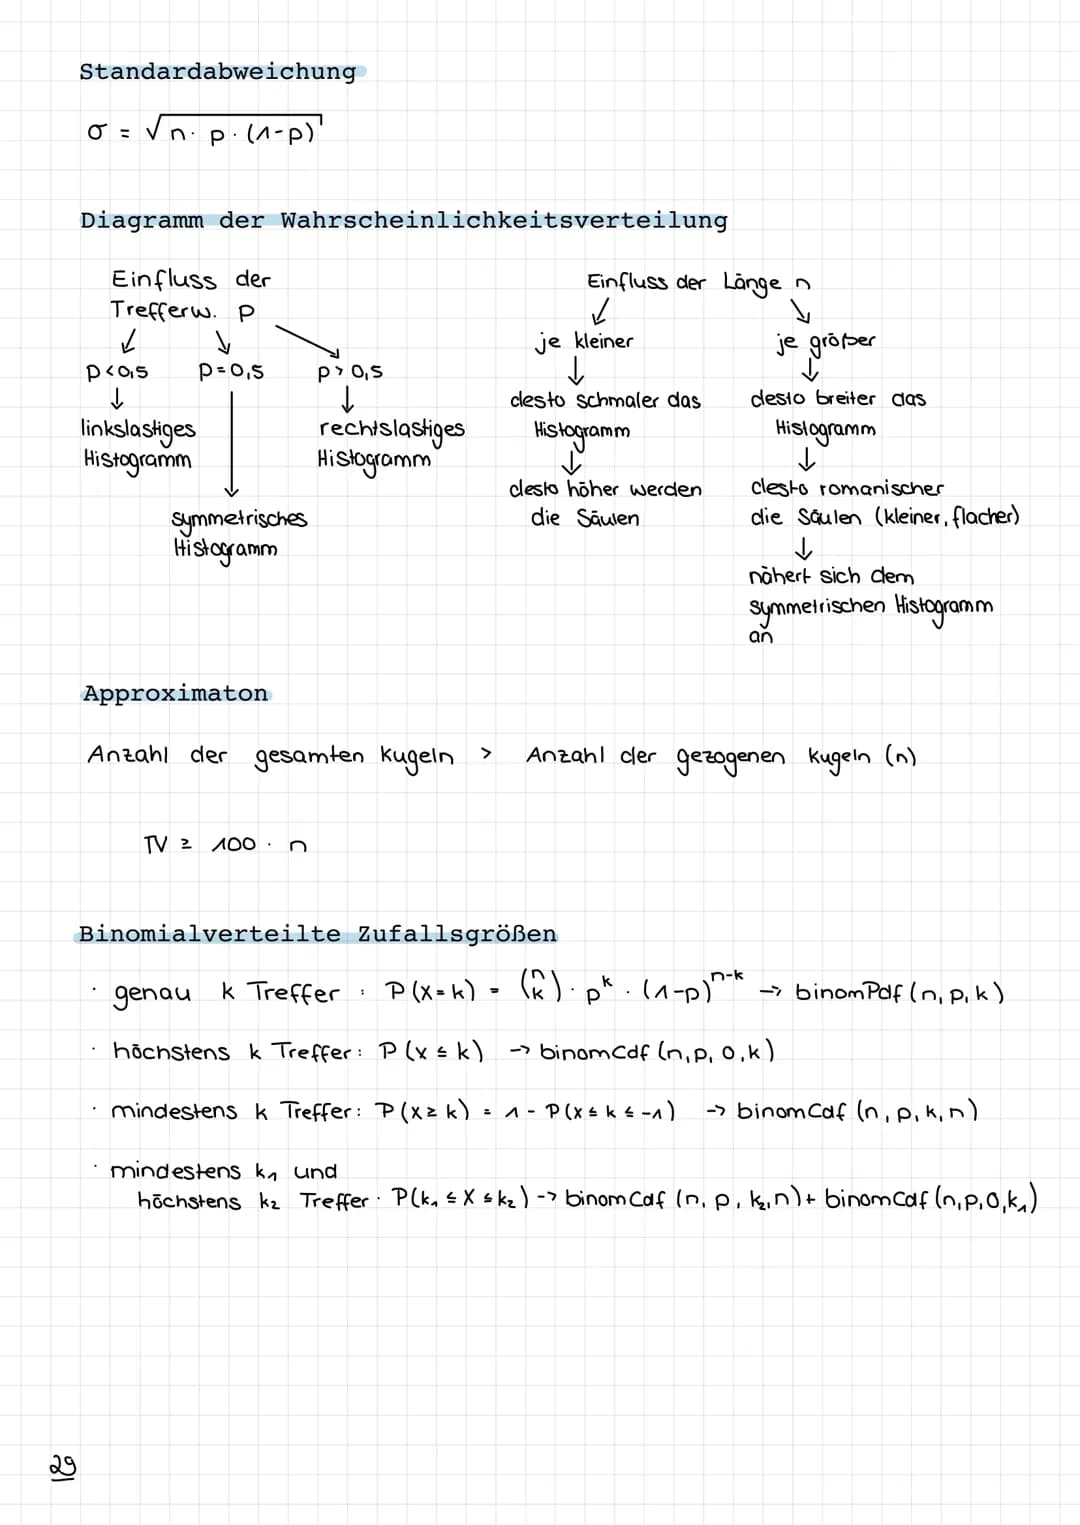 Standardabweichung
σ = √n · p · (1-p)
Diagramm der Wahrscheinlichkeitsverteilung
Einfluss der
Trefferw. p
↙ ↘ ↘
p<0,5 p=0,5 p>0,5
↓ ↓ ↓
linkslastiges rechtslastiges
Histogramm Histogramm
symmetrisches
Histogramm
Einfluss der Länge n
↙ ↘
je kleiner je größer
↓ ↓
desto schmaler das desto breiter das
Histogramm Histogramm
↓ ↓
desto höher werden desto romanischer
die Säulen die Säulen (kleiner, flacher)
↓
nähert sich dem
symmetrischen Histogramm
an
Approximaton
Anzahl der gesamten Kugeln > Anzahl der gezogenen Kugeln (n)
TV ≥ 100 · n
Binomialverteilte Zufallsgrößen
· genau k Treffer : P(X=k) = (n k) · p^k · (1-p)^n-k → binomPdf (n, p, k)
· höchstens k Treffer: P(x ≤ k) → binomcdf (n, p, 0, k)
· mindestens k Treffer: P(x ≥ k) = 1 - P(x ≤ k ≤ -1) → binomCdf (n, p, k, n)
· mindestens k₁ und
höchstens k₂ Treffer · P(k₁ ≤ X ≤ k₂) -> binomCdf (n, p, k₂, n) + binomCdf (n, p, 0, k₁)
29